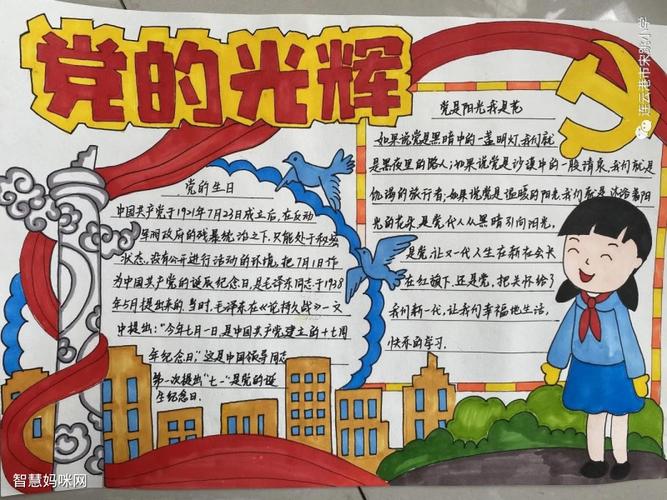 党的光辉
党的生日
中国共产党于1921年7月23日成立后,在反动
政府的残暴统治之下,只能处于秘密
状态,没有公开进行活动的环境,把7月1日作
为中国共产党的诞辰纪念日,是毛泽东同志于1938
年5月提出来的,当时,毛泽东在《论持久战》一文
中提出:“今年七月一日,是中国共产党建立的十七周
年纪念日”,这是中国领导同志
第一次提出“七一”是党的诞
生纪念日.
党是阳光我是花
如果说党是黑暗中的一盏明灯,我们就
是黑夜里的路人;如果说党是沙漠中的一股清泉,我们就是
饥渴的旅行者;如果说党是温暖的阳光,我们就是沐浴着阳
光的花朵,是党,代人从黑暗引向阳光,
是党,让一代人生在新在长
在红旗下,还是党,把关怀给了
我们新一代,让我们幸福地生活,
快乐的学习.
连云港市宋跳小学
智慧妈咪网